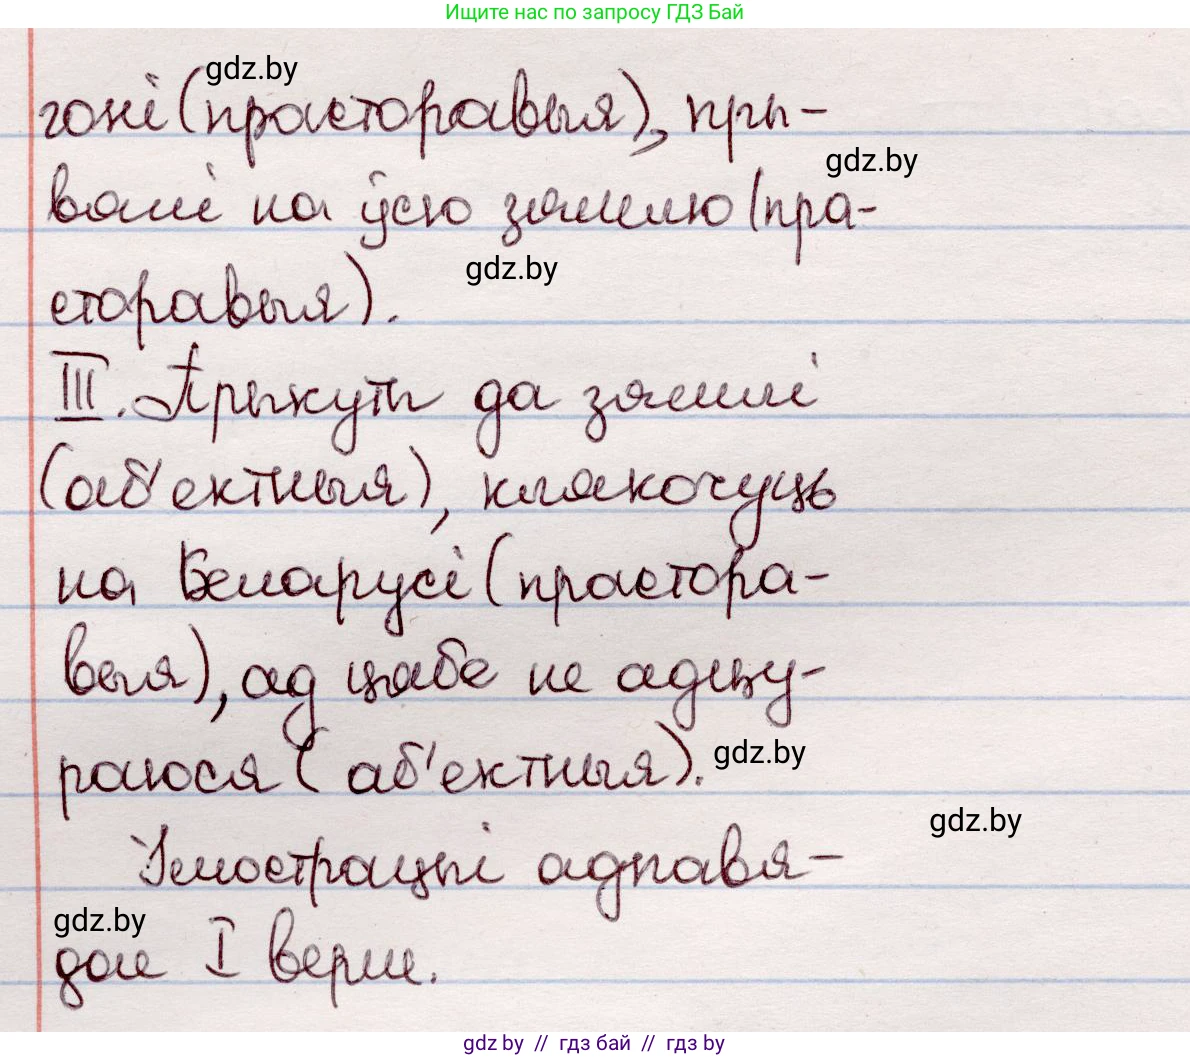 Ищите нас по запросу ГДЗ Бай
gdz.by
гоні (прасторавыя), пры-
gdz.by
валі на ўсю зямлю (пра-
gdz.by
сторавыя).
III. Прыкуты да зямлі
(аб'ектныя), клякочуць
на Беларусі (прастора-
выя), ад цябе не адцу-
раюся (аб'ектныя).
gdz.by
gdz.by
Ілюстрацыі адпавя-
gdz.by
дае I верш.
gdz.by // гдз бай // гдз by